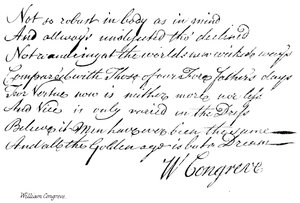 Not so robust in body as in mind
And allways undejected tho' declin'd
Not wondering at the world's new wicked ways
Compar'd with Those of our Fore fathers days
For Vertue now is neither more nor less
And Vice is only varied in the Dress
Believe it Men have ever been the same
And all the Golden age is but a Dream
W Congreve
William Congreve.